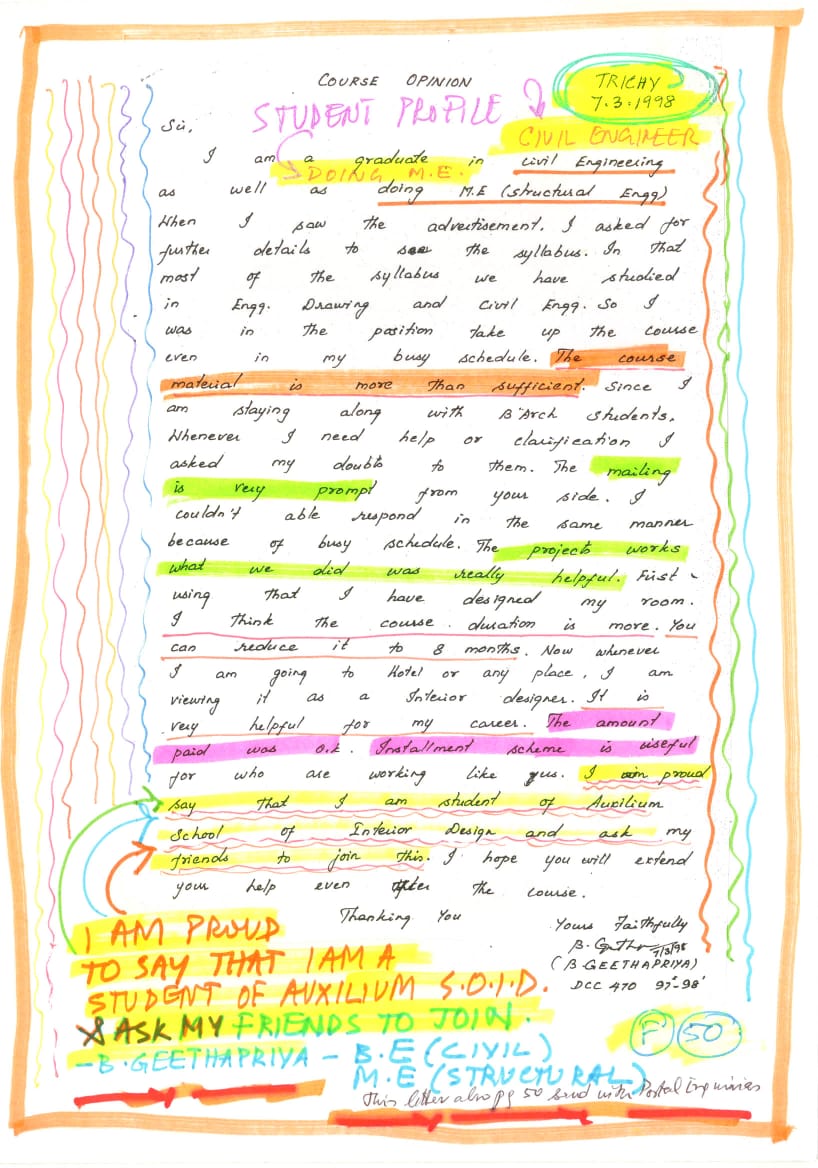 COURSE OPINION
TRICHY
7.3.1998
STUDENT PROFILE
CIVIL ENGINEER
Sir,
I am a graduate in Civil Engineering
DOING M.E.
as well as doing M.E (Structural Engg)
When I saw the advertisement. I asked for
further details to see the syllabus. In that
most of the syllabus we have studied
in Engg. Drawing and Civil Engg. So I
was in the position take up the course
even in my busy schedule. The course
material is more than sufficient. Since I
am staying along with B'Arch students.
Whenever I need help or clarification I
asked my doubts to them. The mailing
is very prompt from your side. I
couldn't able respond in the same manner
because of busy schedule. The projects works
what we did was really helpful. First
using that I have designed my room.
I think the course duration is more. You
can reduce it to 8 months. Now whenever
I am going to Hotel or any place, I am
viewing it as a Interior designer. It is
very helpful for my career. The amount
paid was o.k. Installment scheme is useful
for who are working like us. I am proud
say that I am student of Auxilium
School of Interior Design and ask my
friends to join this. I hope you will extend
your help even after the course.
Thanking You
Yours Faithfully
7/3/98
(B.GEETHAPRIYA)
DCC 470 97-98'
I AM PROUD
TO SAY THAT I AM A
STUDENT OF AUXILIUM S.O.I.D.
& ASK MY FRIENDS TO JOIN.
-B.GEETHAPRIYA - B.E (CIVIL)
M.E (STRUCTURAL)
F 50
This letter also pg 50 send with Postal Enquiries